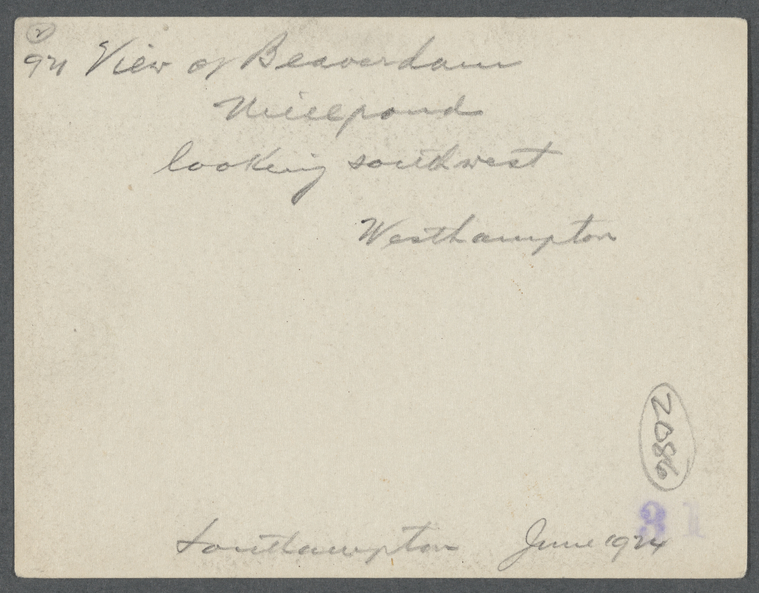 2
94 View of Beaverdam
Millpond
looking southwest
Westhampton
2086
31
Southampton June 1924